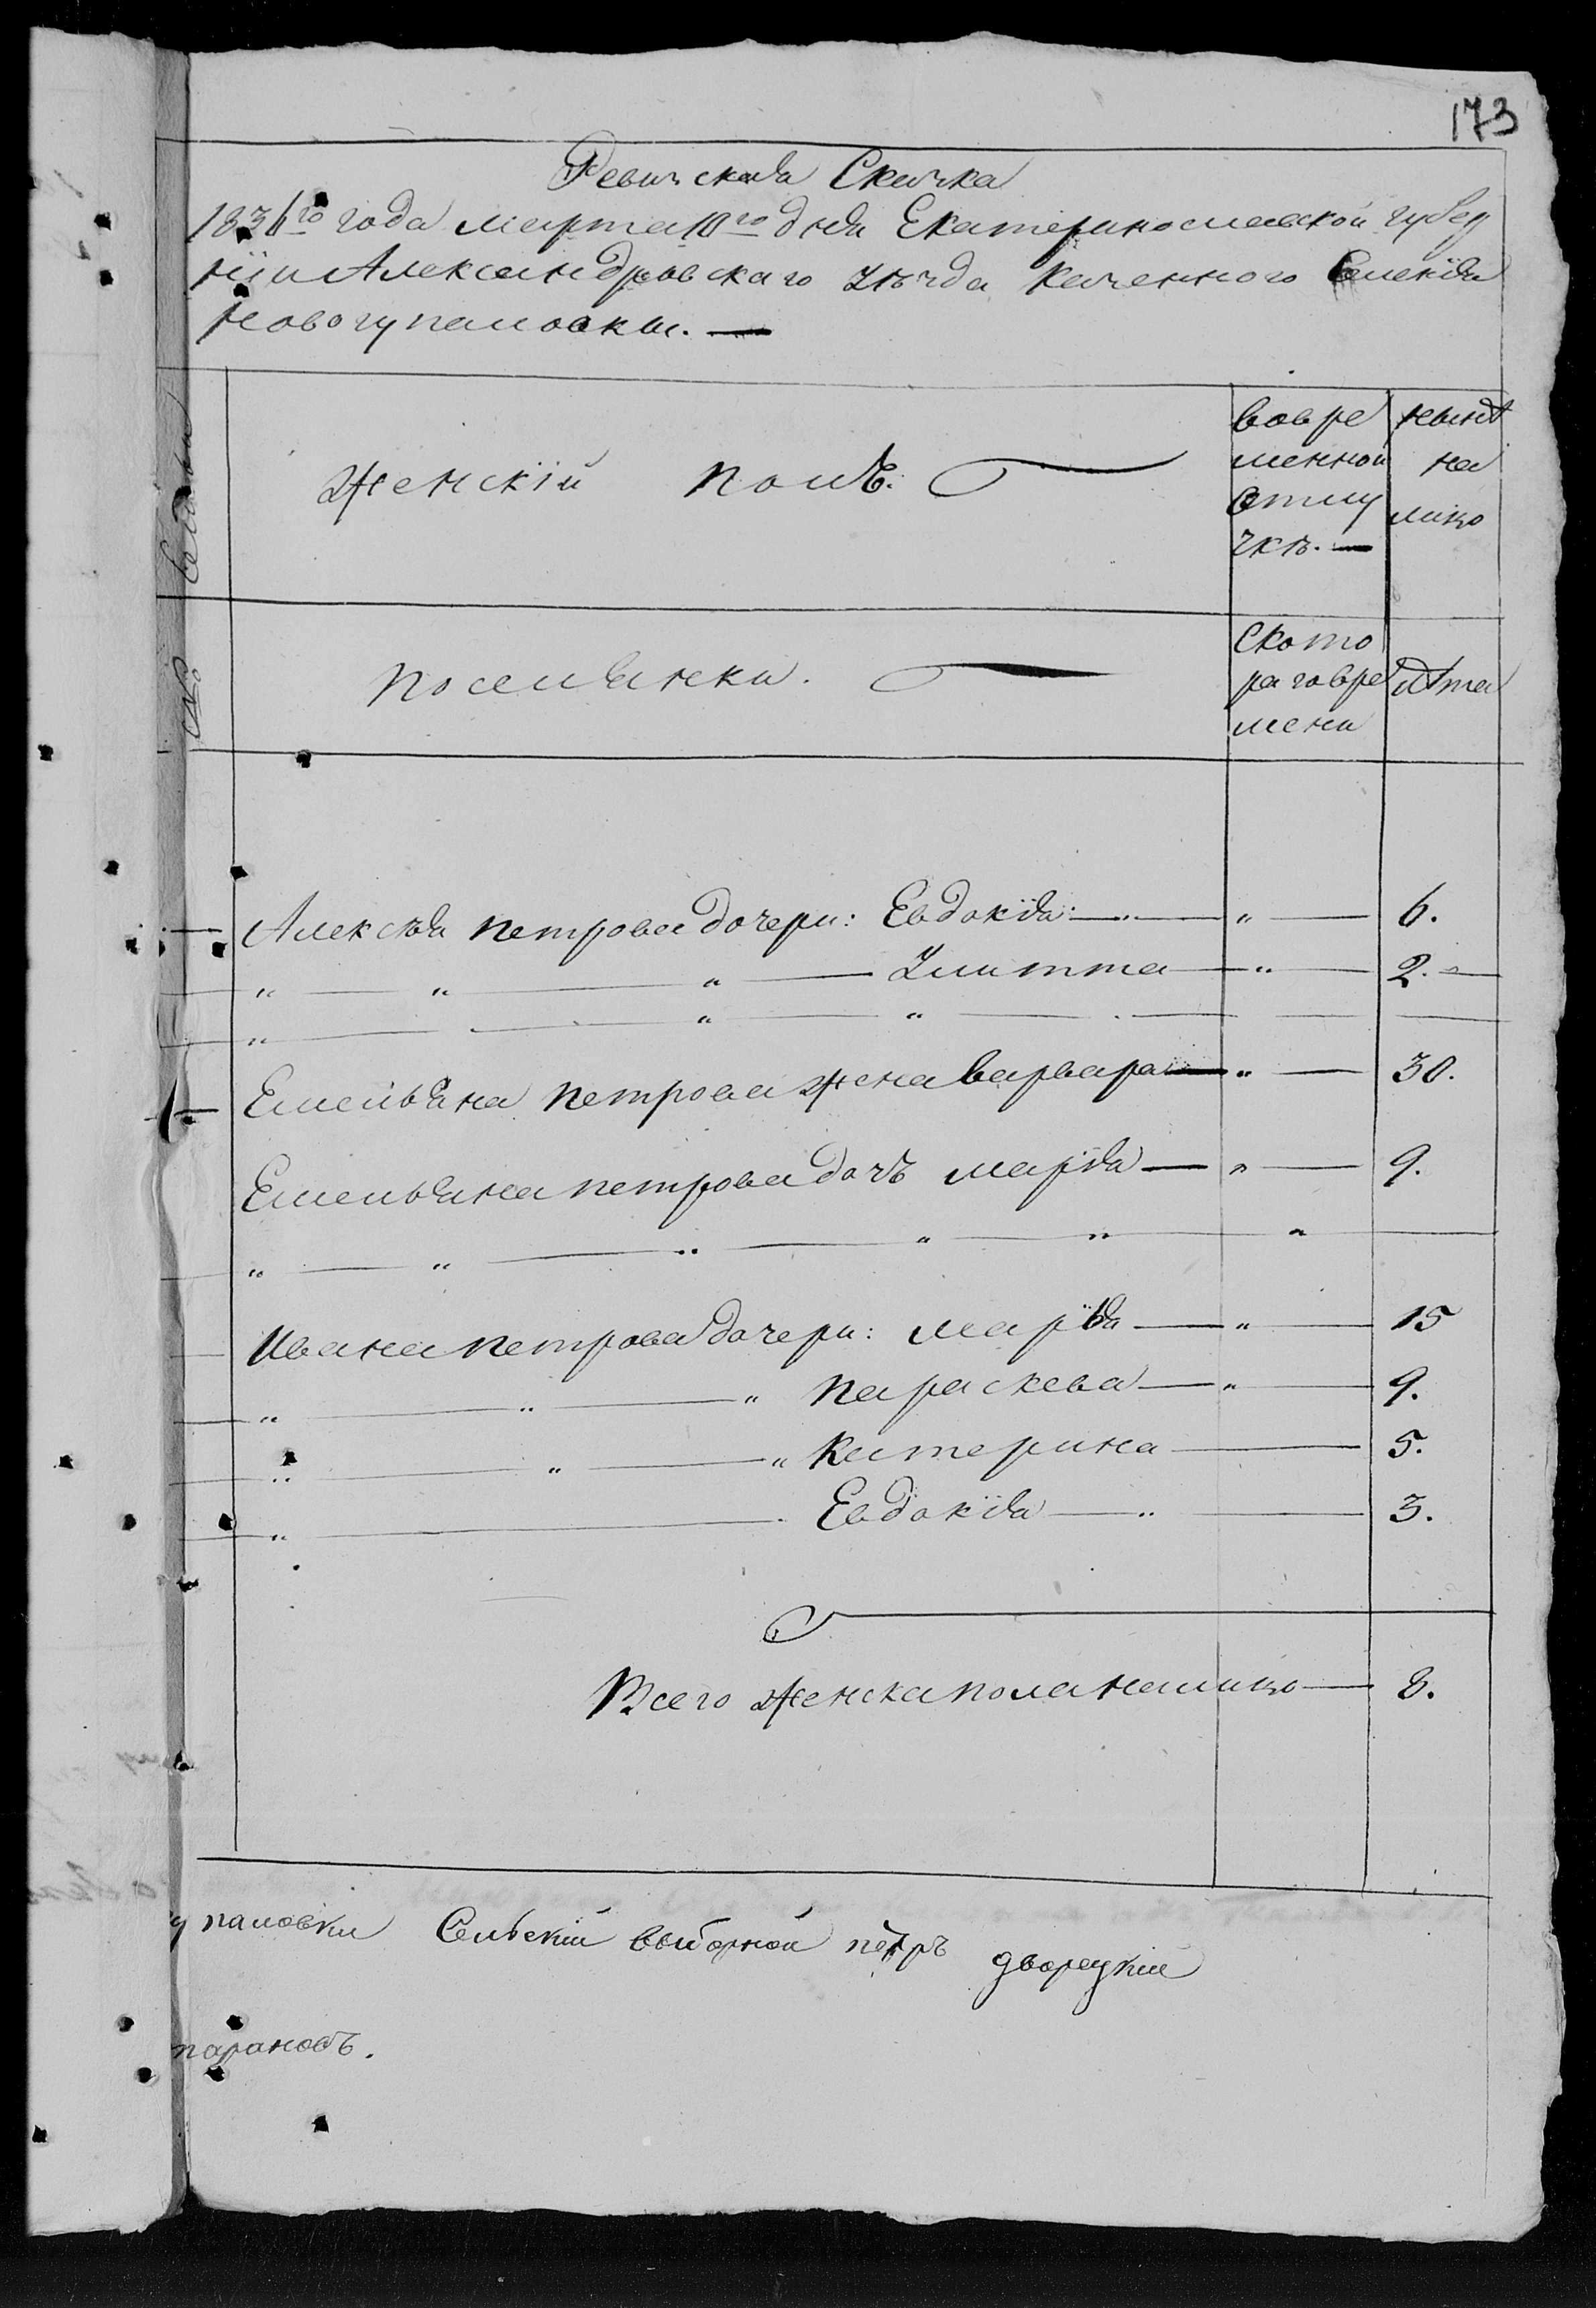 173
Ревизская Сказка
183 го года марта 10го дня Екатеринославской губер
нїи Александровскаго уѣзда казенного Селенїя
Новогупаловки. —
Женскїй полъ.
вовре
менной
отлу
чкѣ. —
нынѣ
на
лицо
№
поселянки.
Ското
раговре
мени
лѣта
Алексѣя петрова дочери: Евдокїя — " — 6.
" — " — " — Улитта — " — 2. —
" — " — " —
Емельяна петрова жена варвара — " — 30.
Емельяна петрова дочъ марїя — " — 9.
" — " — " — " — " — "
Ивана петрова дочери: марїя — " — 15
" — " — " параскева — " — 9.
" — " — " Катерина — 5.
" — Евдокїя — " — 3.
Всего женска пола налицо — 8.
упаловки Сельскїй выборной пётръ дворецкїй
парановъ.